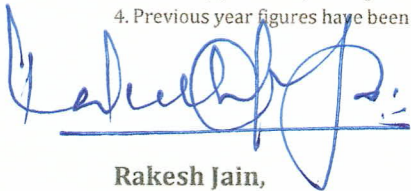 4. Previous year figures have been
Rakesh Jain,